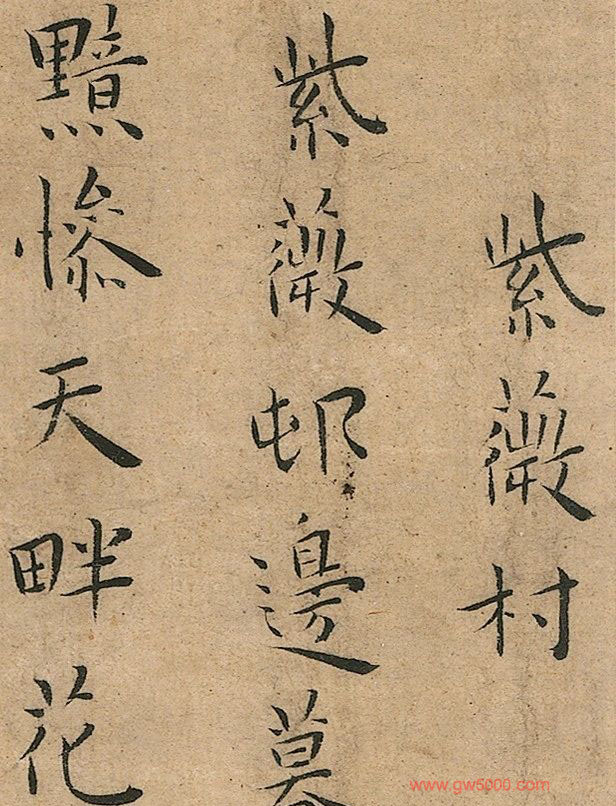 紫薇村
紫薇邨邊暮
黯慘天畔花
www.gw5000.com